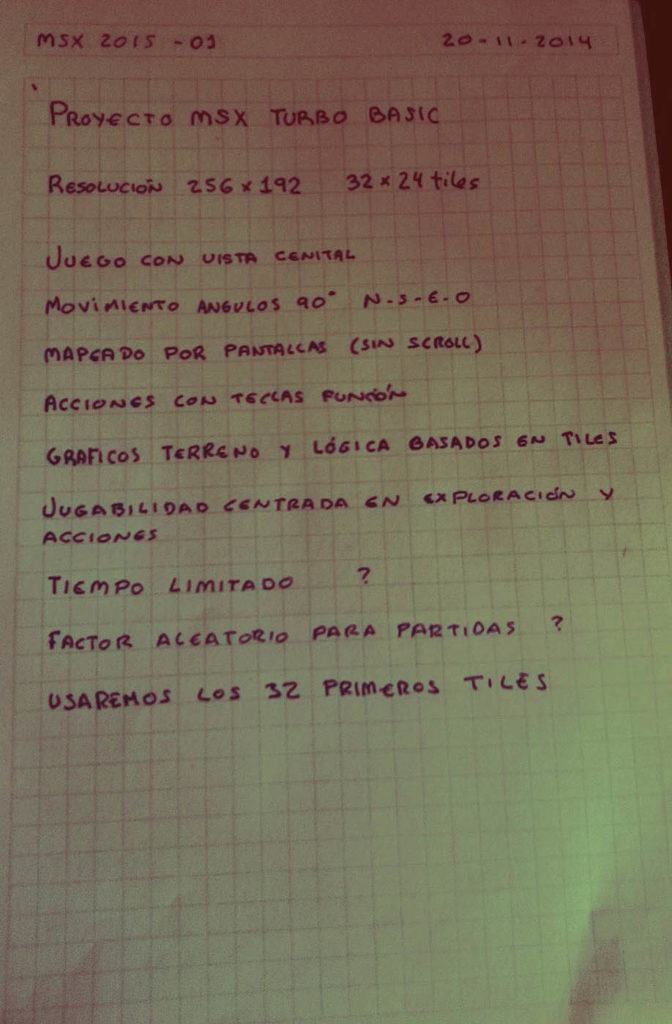 MSX 2015 - 01 20-11-2014
PROYECTO MSX TURBO BASIC
RESOLUCIÓN 256 x 192 32 x 24 tiles
JUEGO CON VISTA CENITAL
MOVIMIENTO ANGULOS 90° N-S-E-O
MAPEADO POR PANTALLAS (SIN SCROLL)
ACCIONES CON TECLAS FUNCIÓN
GRAFICOS TERRENO Y LÓGICA BASADOS EN TILES
JUGABILIDAD CENTRADA EN EXPLORACIÓN Y
ACCIONES
TIEMPO LIMITADO ?
FACTOR ALEATORIO PARA PARTIDAS ?
USAREMOS LOS 32 PRIMEROS TILES